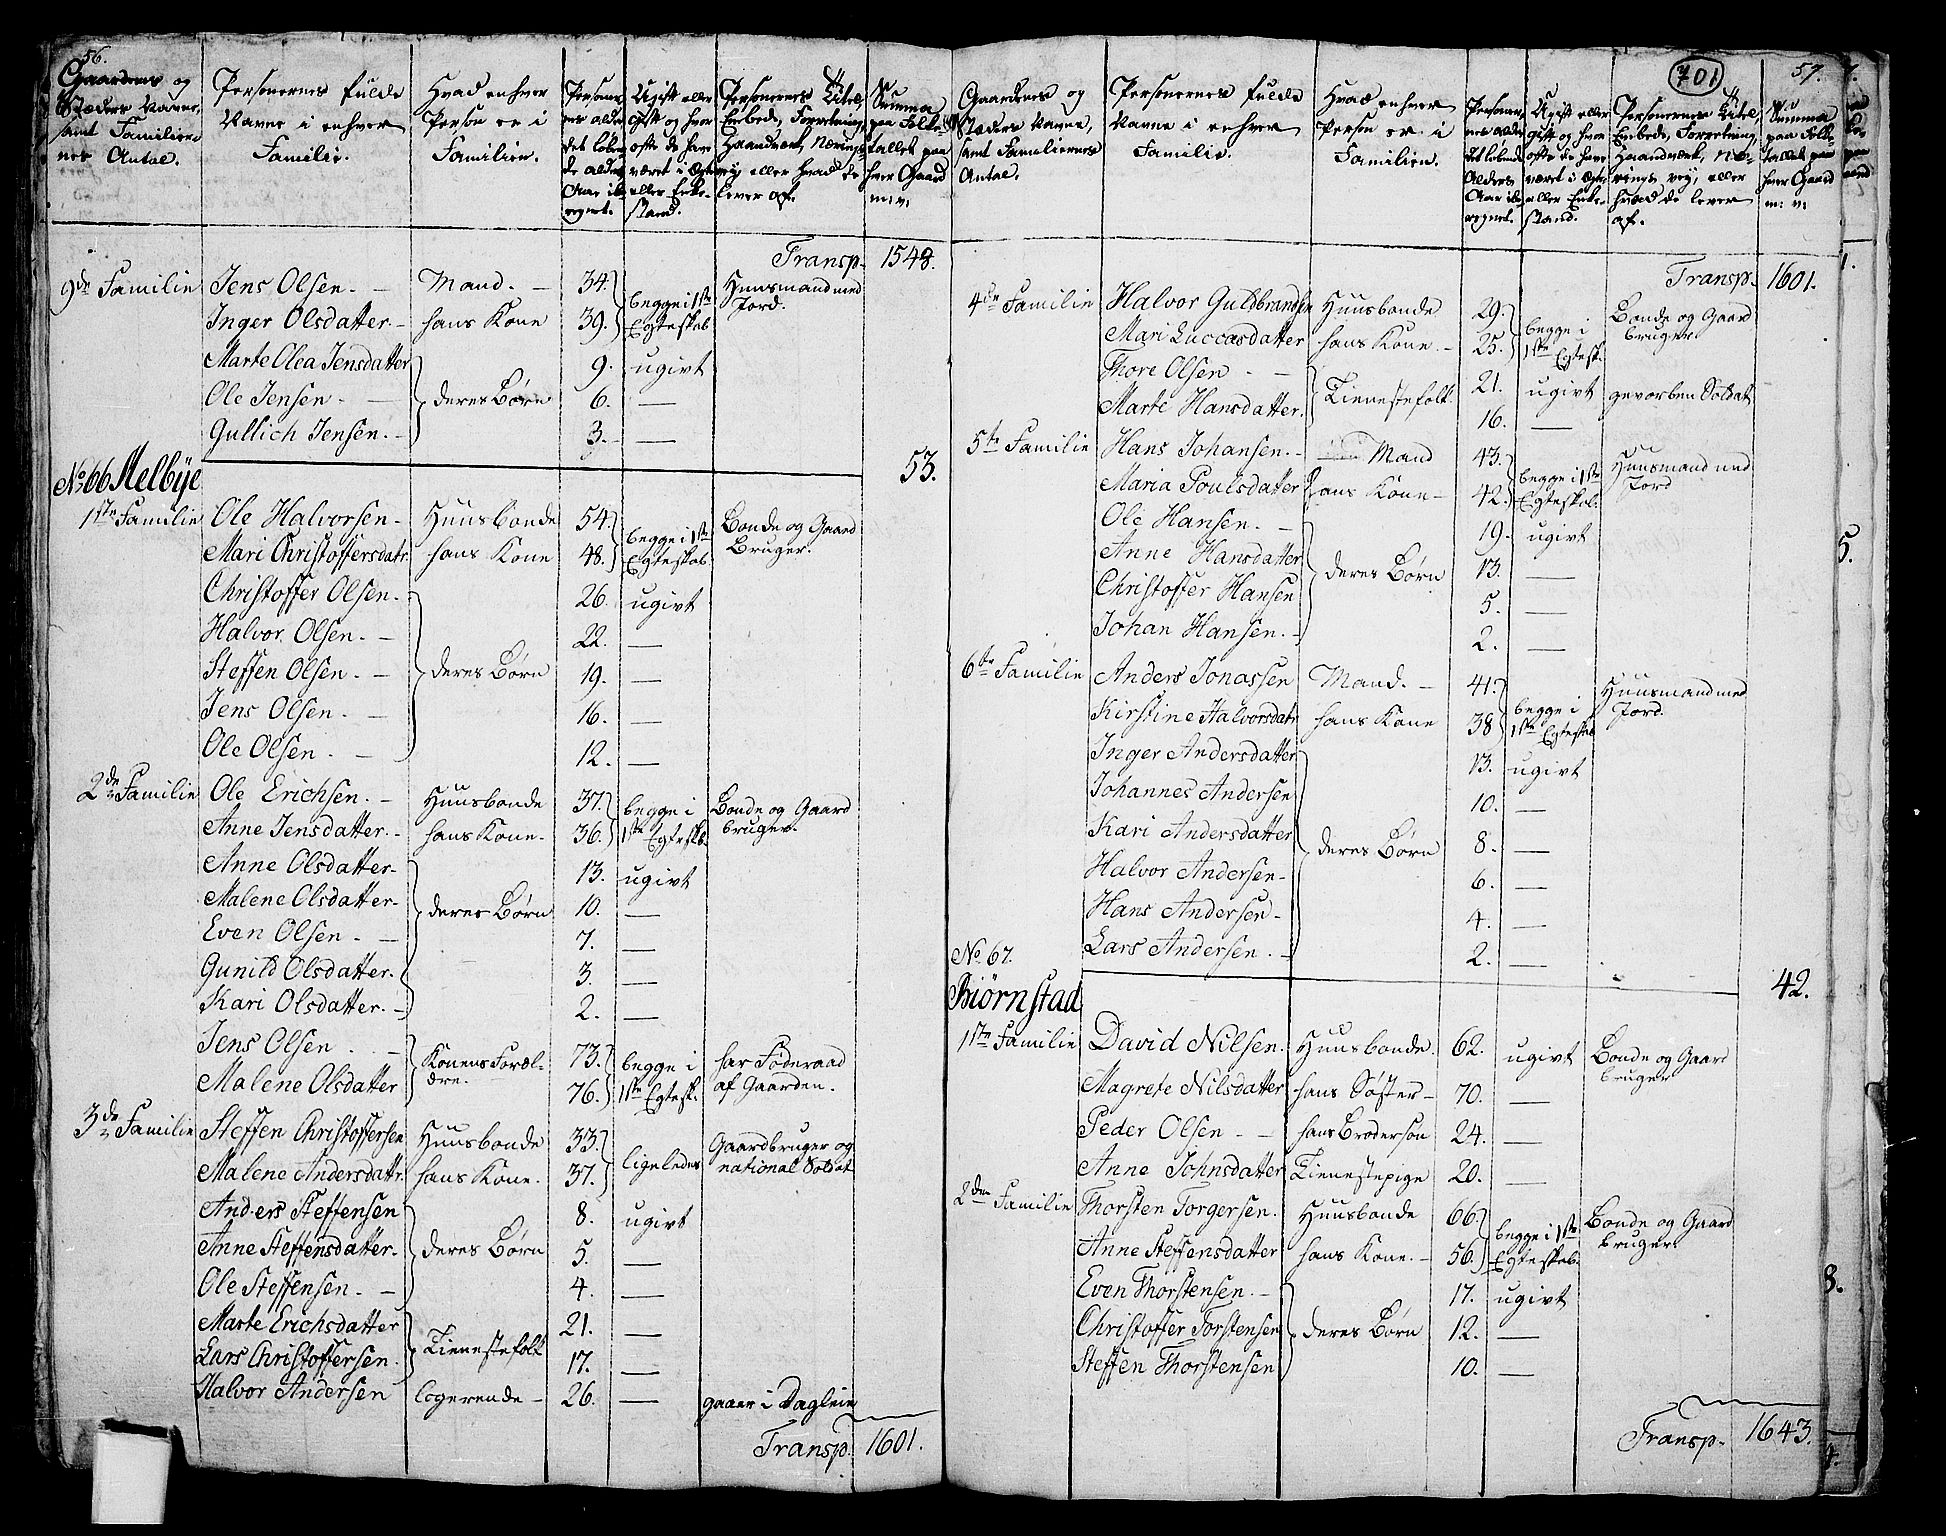 56.
Gaardenes og Stæders Navne, samt Familiernes Antal.
Personernes fulde Navne i enhver Familie.
Hvad enhver Person er i Familien.
Personernes alder det løbende alders Aar iberegnet.
Ugift eller gift og hvor ofte de have været i Ægte eller Enkestand.
Personernes Titel, Embede, Forretning, Haandværk, Næringsvej eller hvad de lever af.
Summa paa Folketallet paa hver Gaard m: v:
Transp. 1548.
9de Familie Jens Olsen. – Mand. – 34. begge i 1ste Egteskab Huusmand med Jord.
Inger Olsdatter. – hans Kone 39.
Marte Olea Jensdatter deres Børn 9. ugivt
Ole Jensen. – 6. —
Gullich Jensen. – 3. —
53.
No. 66 Melbÿe
1ste Familie Ole Halvorsen – Huusbonde 54. begge i 1ste Egteskab Bonde og Gaard Bruger.
Mari Christoffersdatr. hans Kone 48.
Christoffer Olsen. deres Børn 26. ugivt
Halvor Olsen. – 22. —
Steffen Olsen. – 19. —
Jens Olsen. – 16. —
Ole Olsen. – 12. —
2de Familie Ole Erichsen. – Huusbonde 37. begge i 1ste Egteskb. Bonde og Gaard bruger.
Anne Jensdatter. – hans Kone. 36.
Anne Olsdatter – deres Børn 13. ugivt
Malene Olsdatter – 10. —
Even Olsen. – 7. —
Gunild Olsdatter. 3. —
Kari Olsdatter. – 2. —
Jens Olsen – Konens Forældre. 73. begge i 1ste Egtesk. har Føderaad af Gaarden.
Malene Olsdatter 76.
3de Familie Steffen Christoffersen Huusbonde 33. ligeledes Gaardbruger og national Soldat
Malene Andersdattr. hans Kone. 37.
Anders Steffensen deres Børn 8. ugivt
Anne Steffensdatter – 5. —
Ole Steffensen. – 4. —
Marte Erichsdatter Tienestefolk 21. —
Lars Christoffersen. 17. —
Halvor Andersen logerende – 26. — gaaer i Dagleie
Transp. 1601.
701
57.
Gaardenes og Stæders Navne, samt Familiernes Antal.
Personernes fulde Navne i enhver Familie.
Hvad enhver Person er i Familien.
Personernes alder det løbende Alders Aar iberegnet.
Ugift eller gift og hvor ofte de have været i Ægte eller Enkestand.
Personernes Titel, Embede, Forretning, Haandværk, Nærings vej eller hvad de lever af.
Summa paa Folketallet paa hver Gaard m: v:
Transp. 1601.
4de Familie Halvor Guldbrandsen Huusbonde 29. begge i 1ste Egtesk. Bonde og Gaard bruger
Mari Luccasdatter hans Kone – 25.
Thore Olsen – Tienestefolk 21. ugivt gevorben Soldat
Marte Hansdatter. 16. —
5te Familie Hans Johansen. – Mand 43. begge i 1ste Egteskab. Huusmand med Jord
Maria Poulsdatter hans Kone – 42.
Ole Hansen. – deres Børn 19. ugivt
Anne Hansdatter 13. —
Christoffer Hansen 5. —
Johan Hansen. – 2. —
6te Familie Anders Jonassen Mand. – 41. begge i 1ste Egteskab Huusmand med Jord.
Kirstine Halvorsdatr hans Kone 38
Inger Andersdatter deres Børn 13. ugivt
Johannes Andersen 10. —
Kari Andersdatter 8. —
Halvor Andersen – 6. —
Hans Andersen – 4. —
Lars Andersen. – 2. —
No. 67.
42.
Biørnstad
1ste Familie David Nilsen. Huusbonde. 62. ugivt Bonde og Gaard bruger
Magrete Nilsdatter hans Søster – 70. —
Peder Olsen – hans Brodersøn 24. —
Anne Johnsdatter Tienestepige 20. —
2den Familie Thorsten Torgersen. Huusbonde 66. begge i 1ste Egteskab. Bonde og Gaard bruger.
Anne Steffensdatter hans Kone. – 56.
Even Thorstensen. – deres Børn 17. ugivt
Christoffer Torstensen 12. —
Steffen Thorstensen 10. —
Transp. 1643.
5.
8.